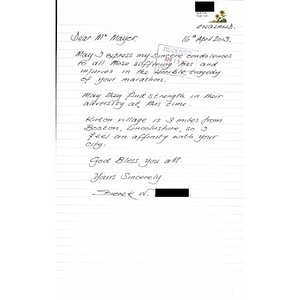 ENGLAND.
Dear Mr Mayor. 16th April 2013.
May I express my sincere condolences
to all those suffering loss and
injuries in the terrible tragedy
of your marathon.
May they find strength in their
adversity at this time.
Kirton village is 3 miles from
Boston, Lincolnshire, so I
feel an affinity with your
city.
God Bless you all.
Yours Sincerely
W.